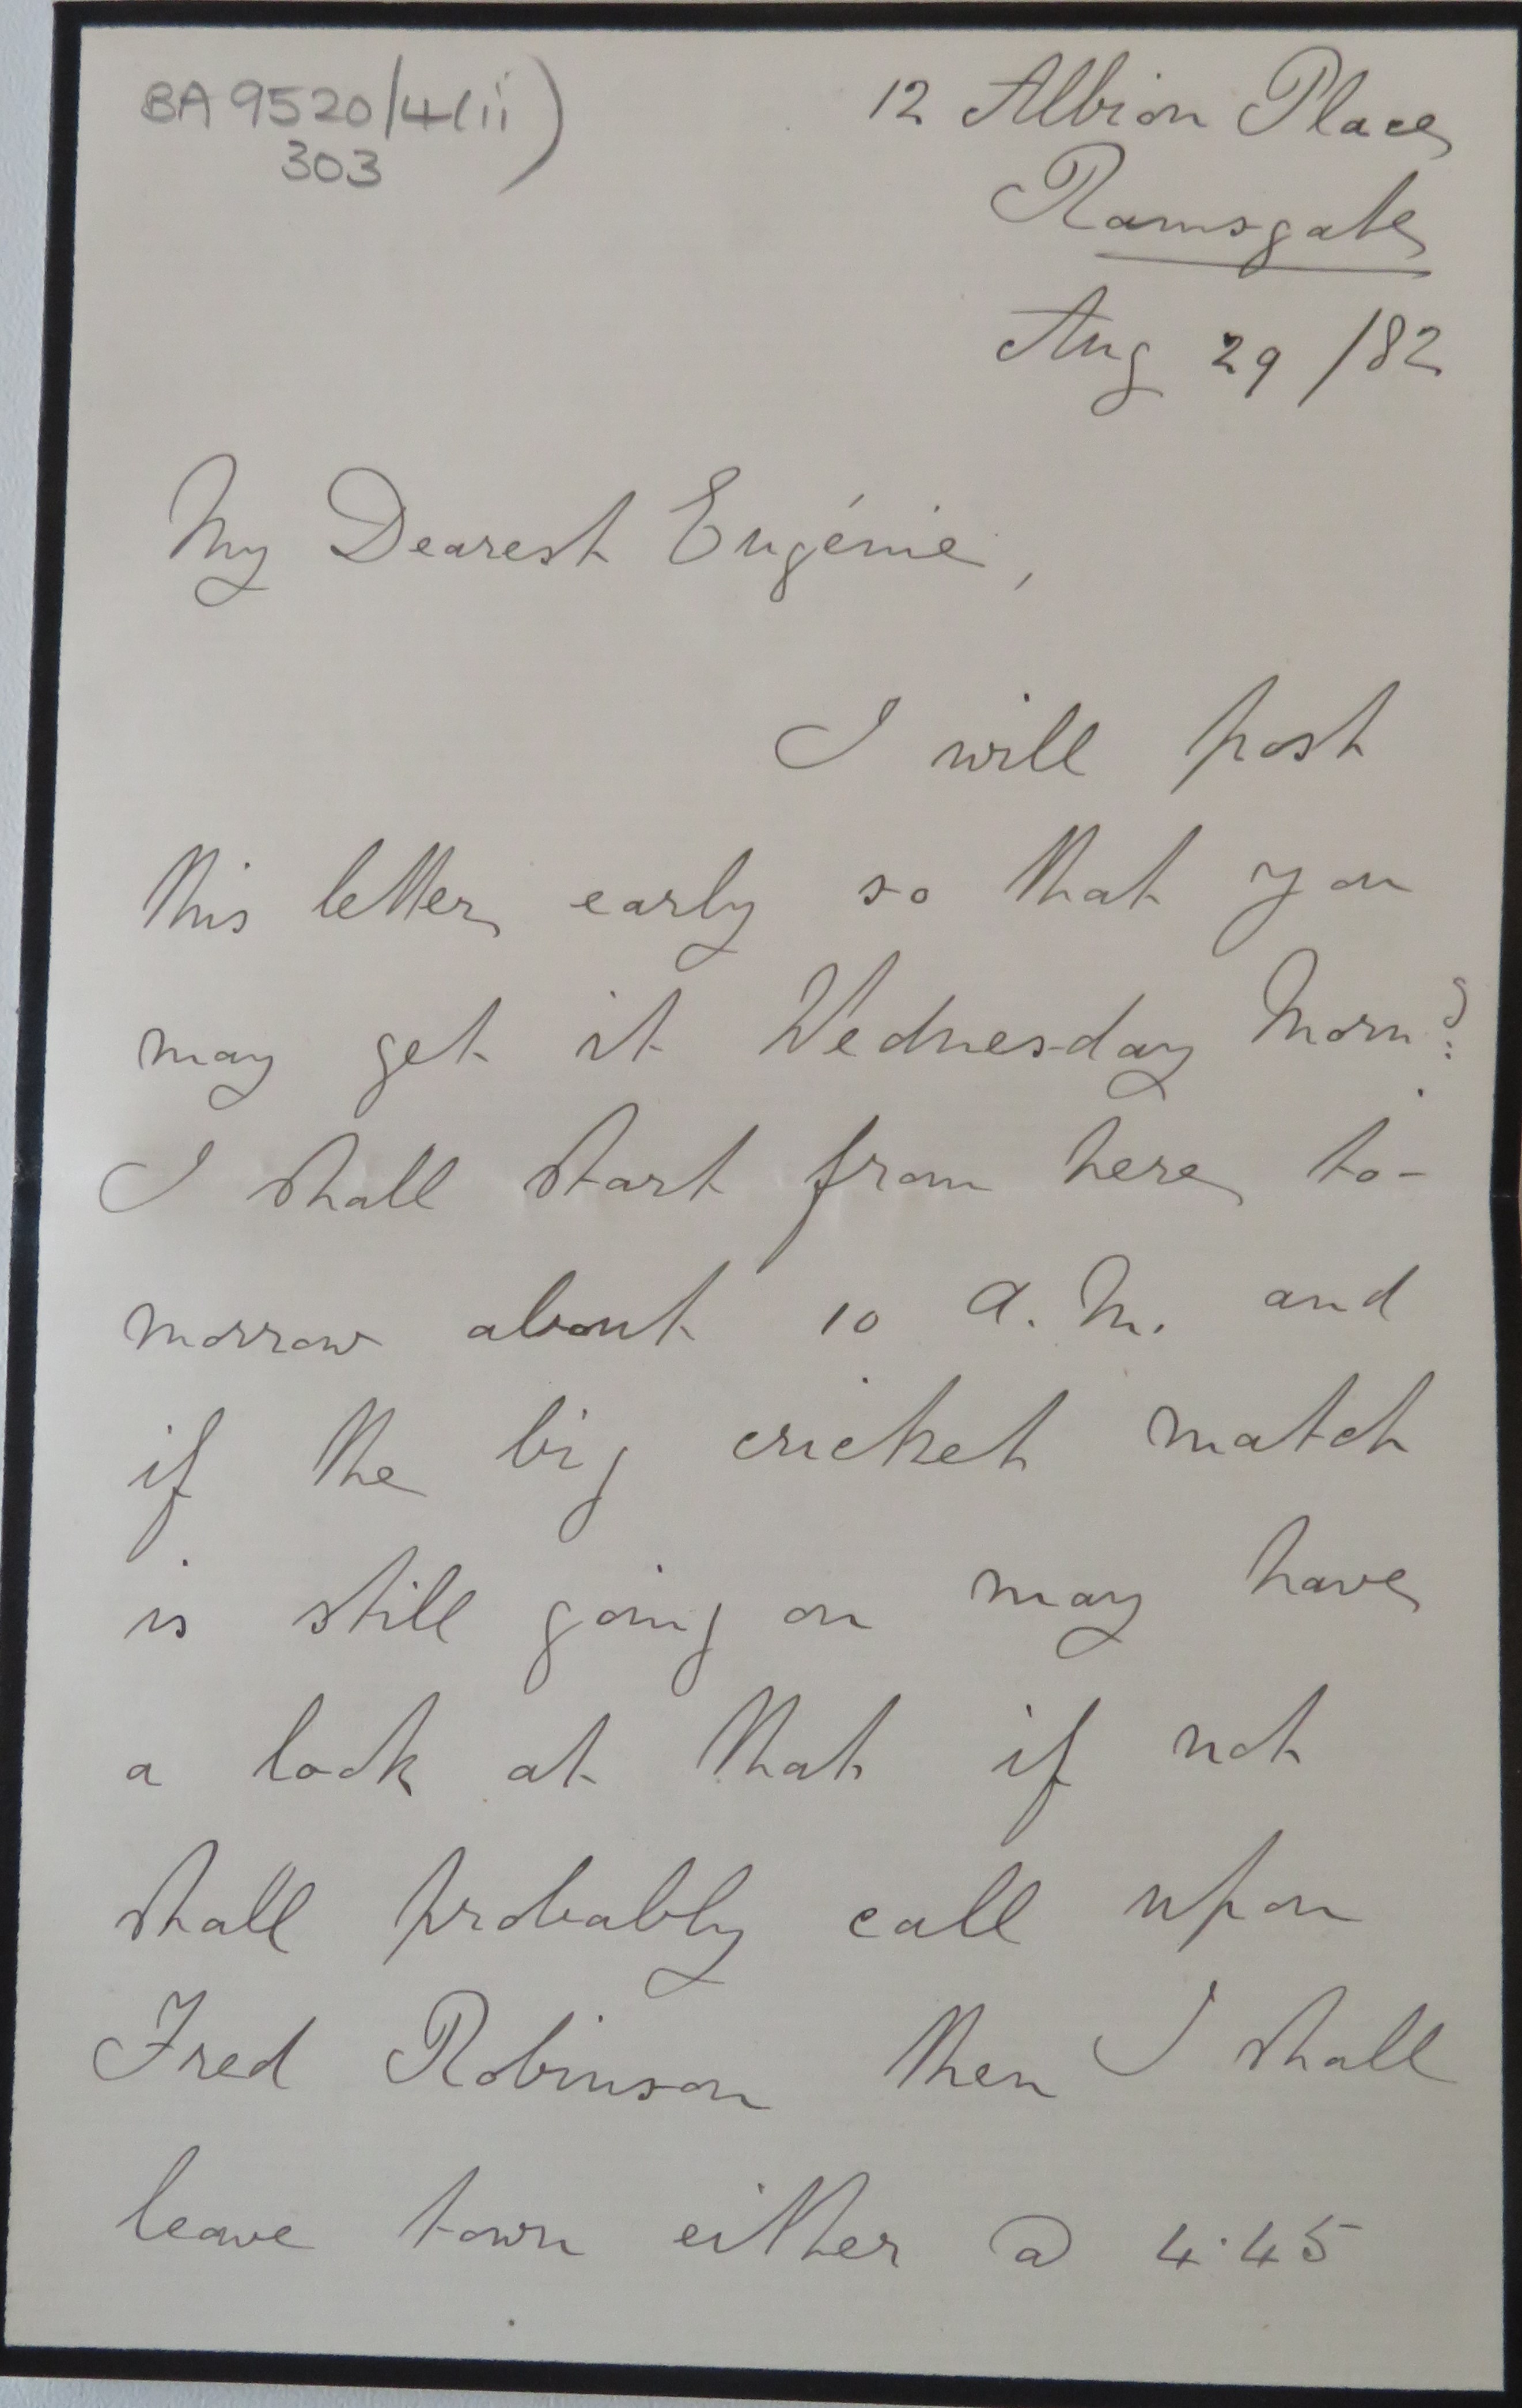 BA 9520/4(ii)
303
12 Albion Place
Ramsgate
Aug 29 /82
My Dearest Eugénie,
I will post
this letter early so that you
may get it Wednesday Morng.
I shall start from here to-
morrow about 10 A.M. and
if the big cricket match
is still going on may have
a look at that if not
shall probably call upon
Fred Robinson then I shall
leave town either @ 4.45